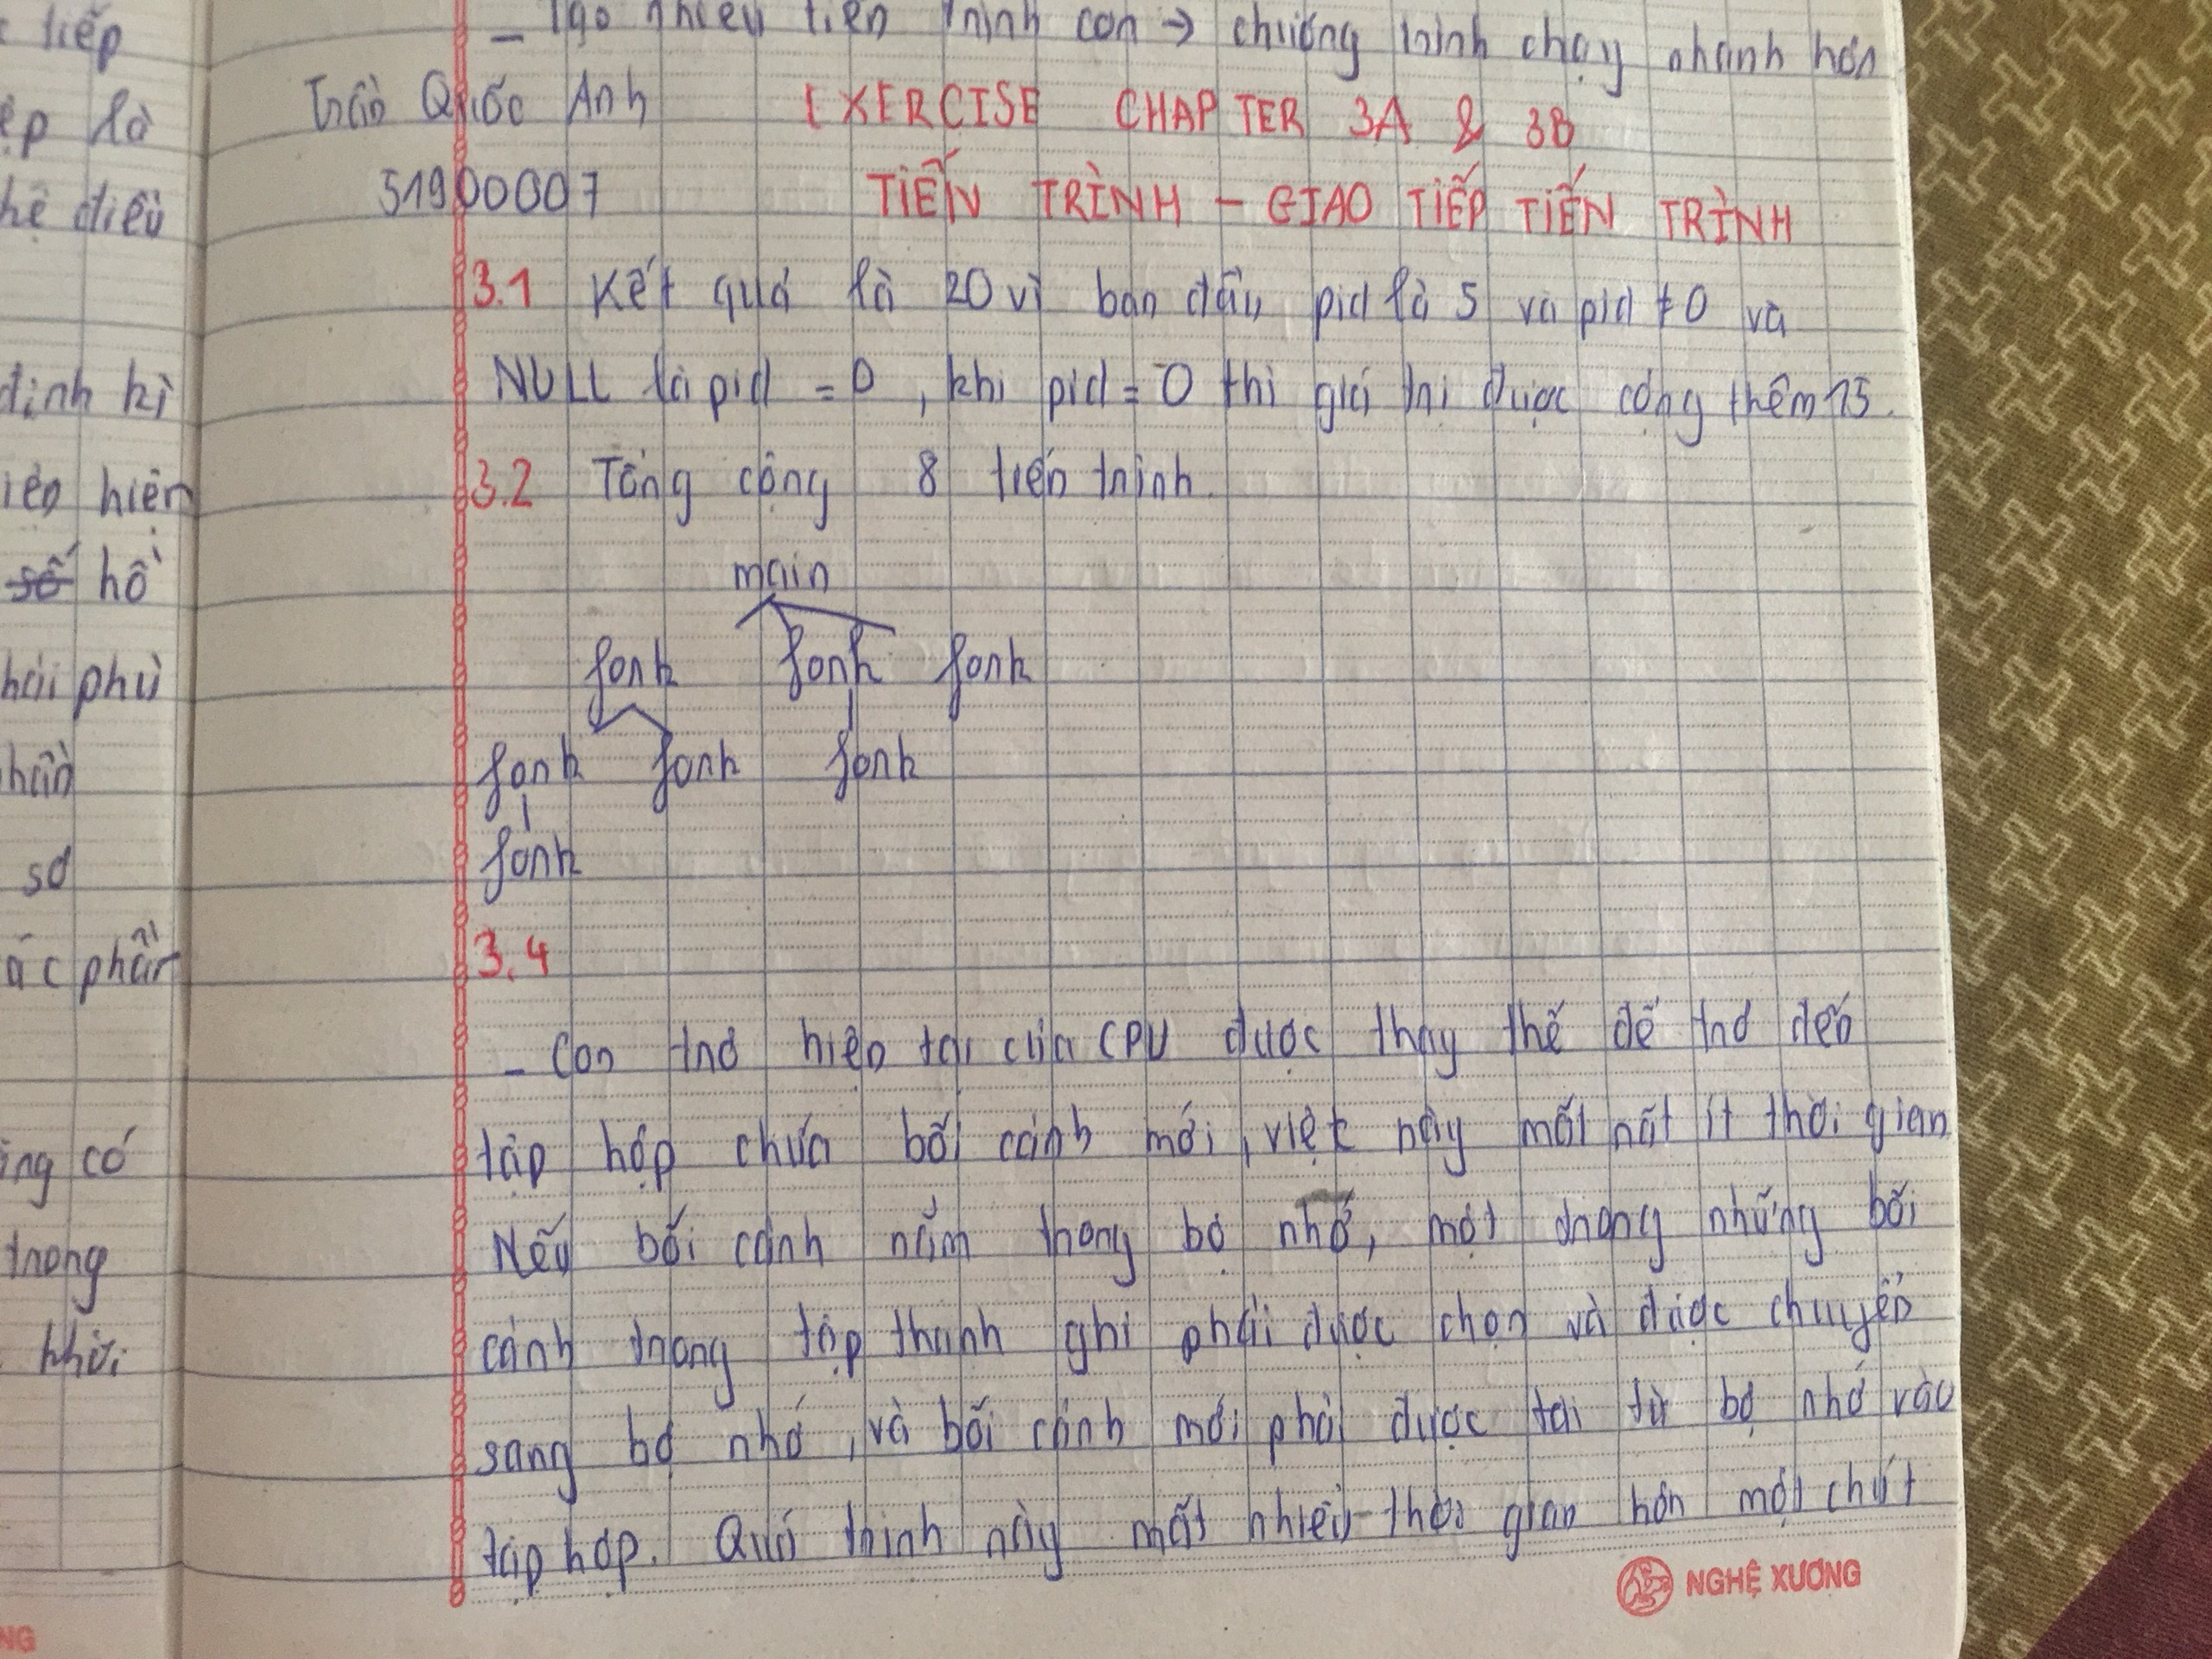 tiếp
ệp là
hệ điều
định kì
iện hiện
số hồ
hải phù
sơ
ác phần
ing có
trong
khởi
NG
_ Tạo nhiều tiến trình con → chương trình chạy nhanh hơn
Trần Quốc Anh EXERCISE CHAPTER 3A & 3B
51900007 TIẾN TRÌNH - GIAO TIẾP TIẾN TRÌNH
3.1 Kết quả là 20 vì ban đầu pid là 5 và pid ≠ 0 và
NULL là pid = 0, khi pid = 0 thì giá trị được cộng thêm 15.
3.2 Tổng cộng 8 tiến trình.
main
fork fork fork
fork fork fork
fork
3.4
_ Con trỏ hiện tại của CPU được thay thế để trỏ đến
tập hợp chứa bối cảnh mới, việc này mất rất ít thời gian
Nếu bối cảnh nằm trong bộ nhớ, một trong những bối
cảnh trong tập thanh ghi phải được chọn và được chuyển
sang bộ nhớ, và bối cảnh mới phải được tải từ bộ nhớ vào
tập hợp. Quá trình này mất nhiều thời gian hơn một chút
NGHỆ XƯƠNG